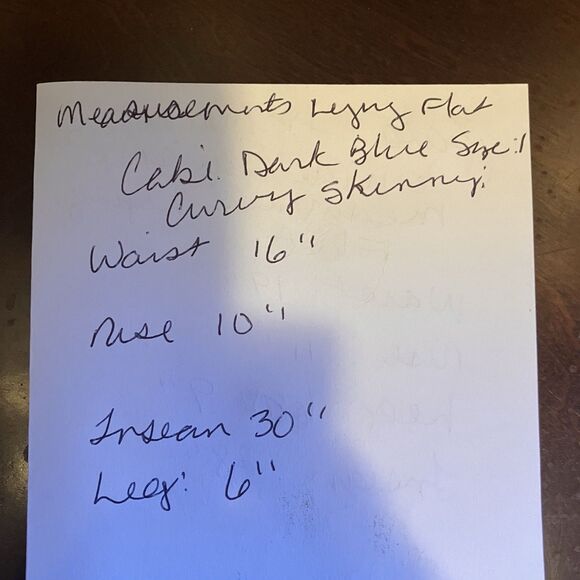 Measurements Lying Flat
Cabi. Dark Blue Size: 1
Curvy Skinny.
Waist 16"
Rise 10"
Inseam 30"
Leg: 6"